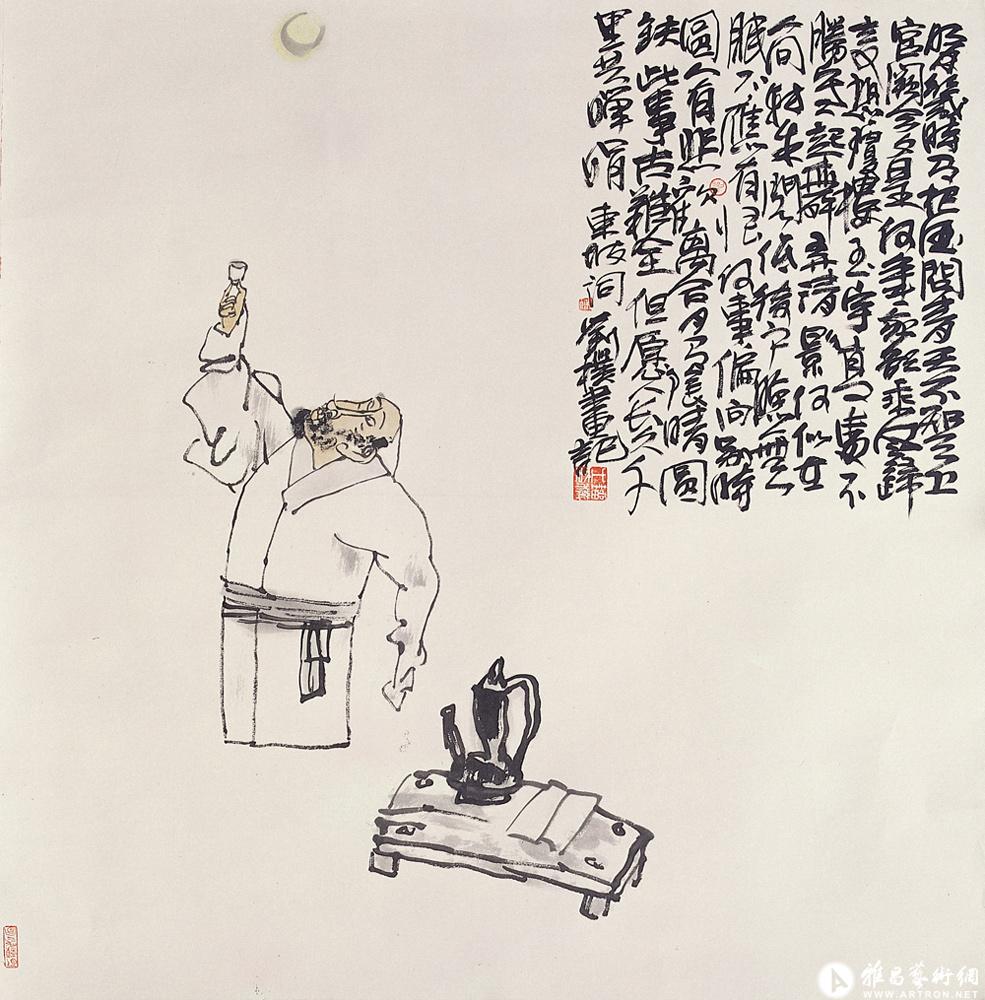 明月幾時有把酒問青天不知天上
宮闕今夕是何年我欲乘風歸
去又恐瓊樓玉宇高處不
勝寒起舞弄清影何似在
人間轉朱閣低綺戶照無
眠不應有恨何事偏向別時
圓人有悲歡離合月有陰晴圓
缺此事古難全但願人長久千
里共嬋娟 東坡詞 劉樸畫記
雅昌藝術網
WWW.ARTRON.NET